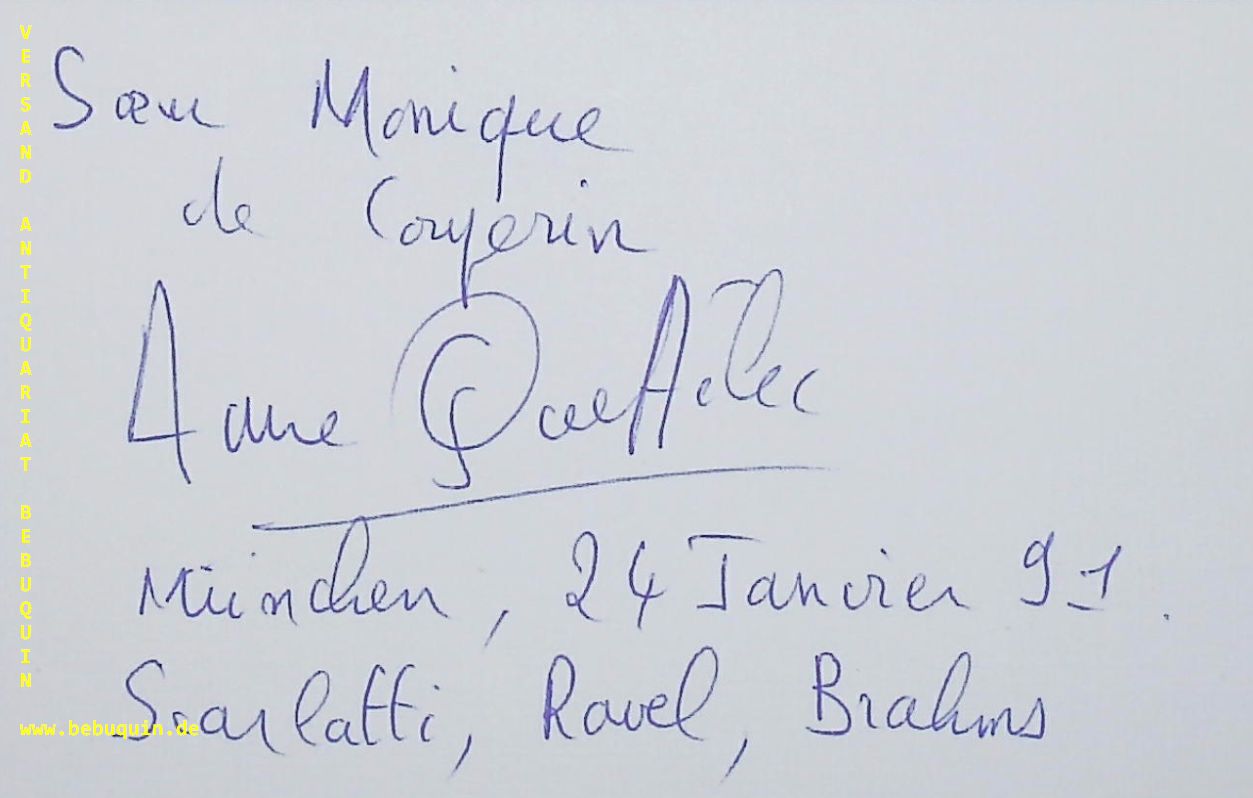 Sœur Monique
de Couperin
Anne Queffélec
München, 24 Janvier 91.
Scarlatti, Ravel, Brahms
VERSAND ANTIQUARIAT BEBUQUIN
www.bebuquin.de